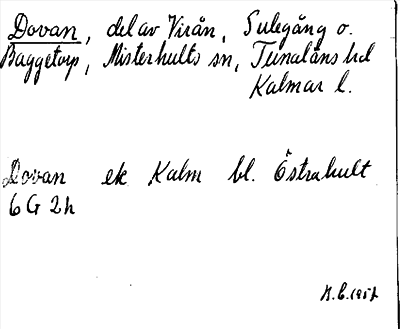 Dovan, del av Virån, Sulegång o.
Baggetorp, Misterhults sn, Tunaläns hd
Kalmar l.
Dovan ek Kalm bl. Östrahult
6 G 2h
K.G. 1957